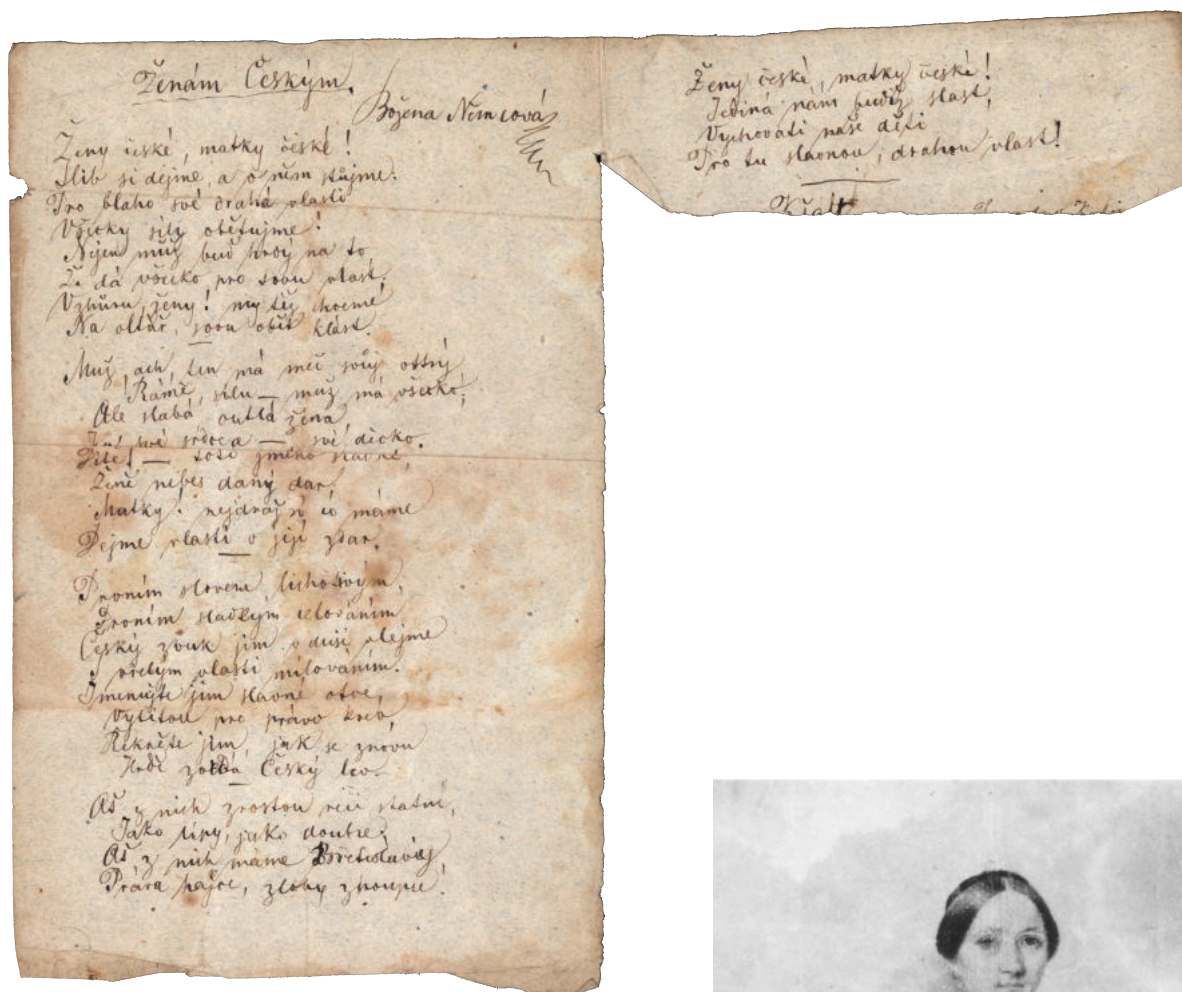 Ženám Českým.
Božena Němcová
Ženy české, matky české!
Slib si dejme, a o něm stůjme:
Pro blaho své drahé vlasti
Všecky síly obětujme!
Nejen muž buď hrdý na to,
Že dá všecko pro svou vlast,
Vzhůru, ženy! my též chceme
Na oltář, svou oběť klást.
Muž, ach, ten má meč svůj ostrý
Rámě, sílu — muž má všecko;
Ale slabá outlá žena
své srdce a — své děcko.
Dítě! — toť jméno slavné,
Ženě nebes daný dar!
Matky! nejdražší co máme
Dejme vlasti v její zdar.
Prvním slovem lichotivým,
Prvním sladkým celováním
Český zvuk jim v duši vlejme
S vřelým vlasti milováním.
Jmenujte jim slavné otce,
Vylitou pro právo krev,
Řekněte jim, jak se znovu
Hrdě Český lev.
Ať z nich zrostou reci statní,
Jako lípy, jako doubce;
Ať z nich máme Břetislavy,
Práva hájce, zloby zhoubce!
Ženy české, matky české!
Jediná nám budiž slast,
Vychovati naše děti
Pro tu slavnou, drahou vlast!